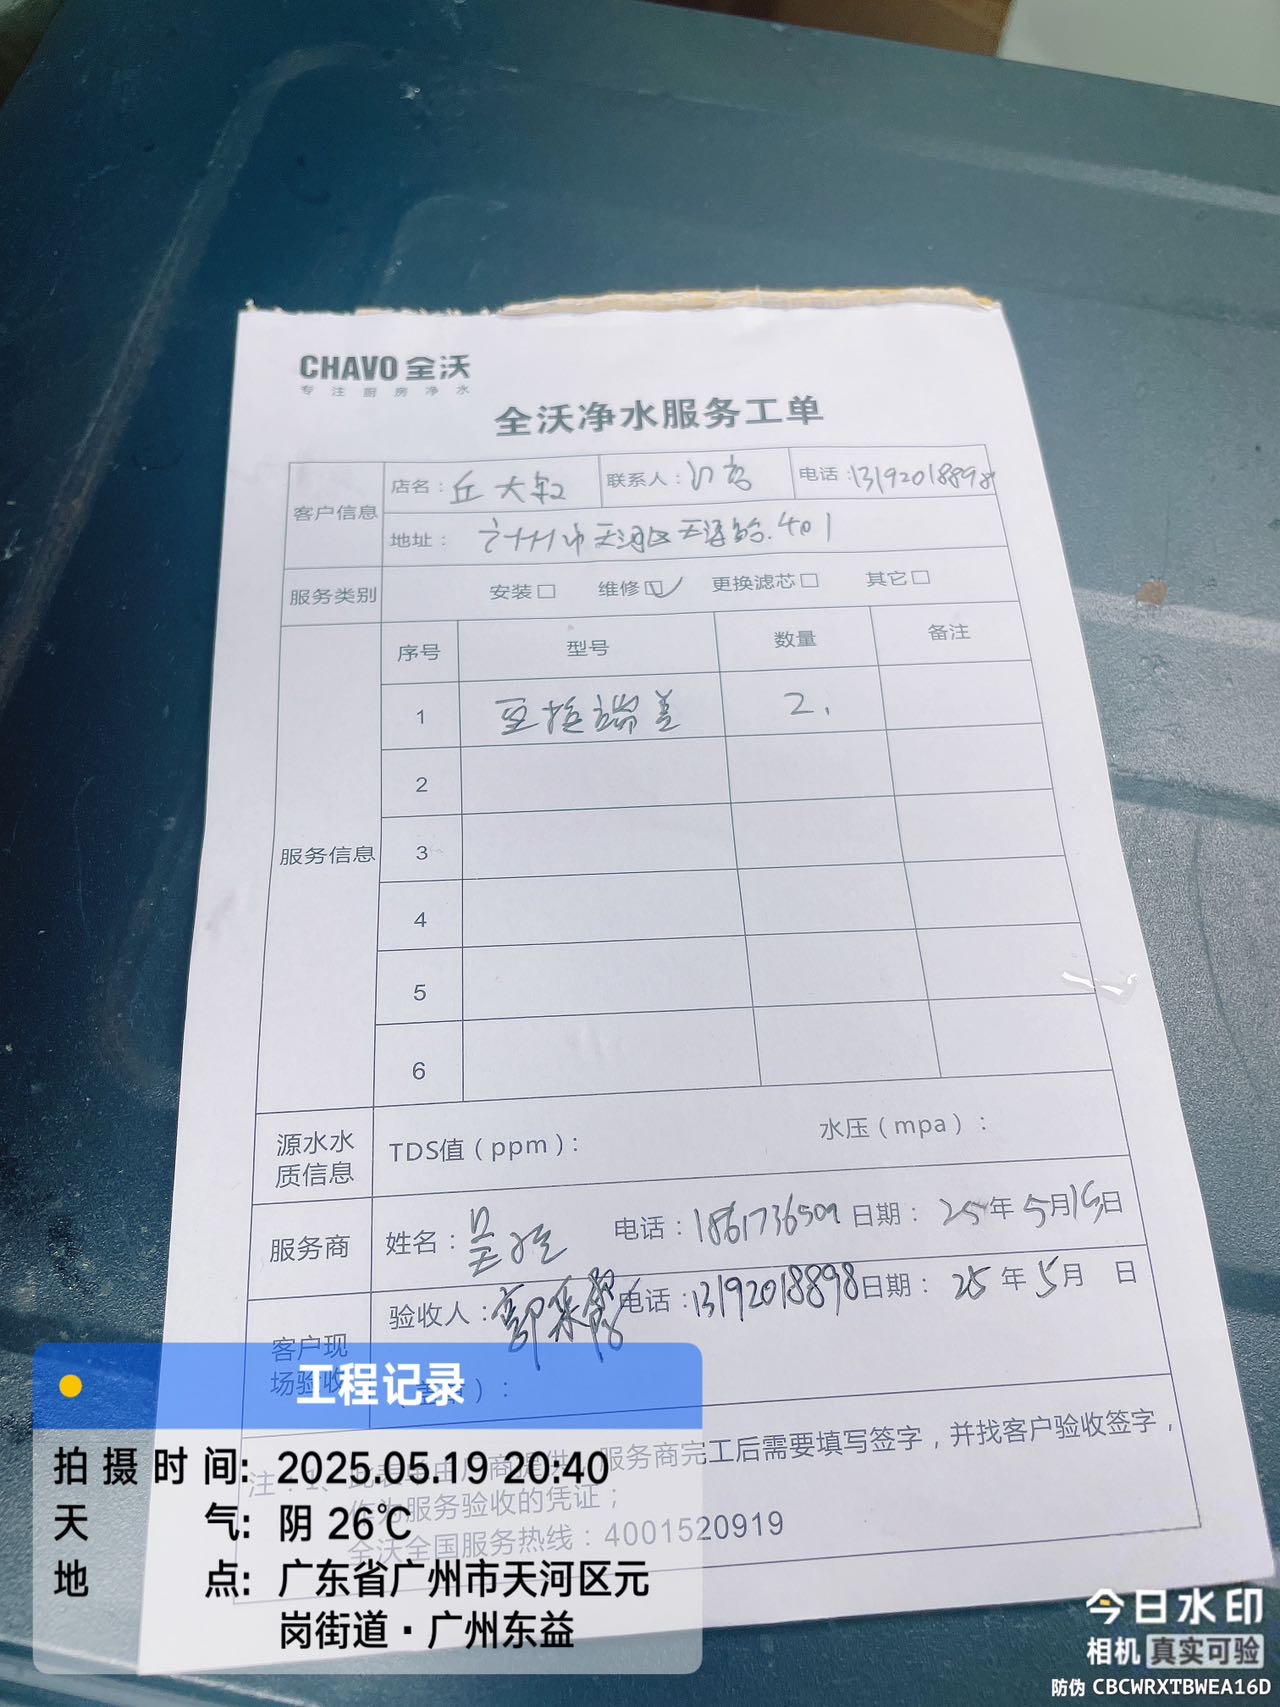 CHAVO 全沃
专注厨房净水
全沃净水服务工单
客户信息 店名：丘大叔 联系人： 电话：13192018898
地址：广州市天河区天源路401
服务类别 安装□ 维修☑ 更换滤芯□ 其它□
服务信息 序号 型号 数量 备注
1 2
2
3
4
5
6
源水水质信息 TDS值（ppm）： 水压（mpa）：
服务商 姓名：吴 电话： 日期：25年5月19日
客户现场验收 验收人：郭 电话：13192018898 日期：25年5月 日
注：1、此表单由厂商提供，服务商完工后需要填写签字，并找客户验收签字，
作为服务验收的凭证；
全沃全国服务热线：4001520919
工程记录
拍摄时间：2025.05.19 20:40
天气：阴 26℃
地点：广东省广州市天河区元
岗街道·广州东益
今日水印
相机 真实可验
防伪 CBCWRXTBWEA16D